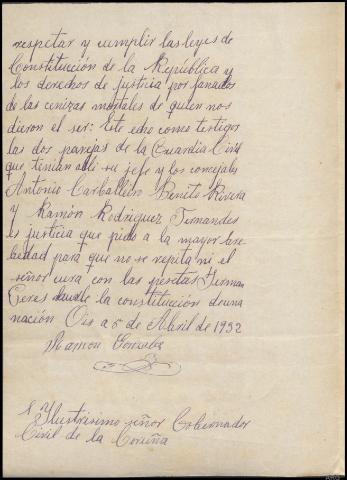 respetar y cumplir las leyes de
Constitución de la República y
los derechos de justicia profanados
de las cenizas mortales de quien nos
dieron el ser: Este echo como testigos
las dos parejas de la Guardia Civil
que tenian alli su jefe y los concejales
Antonio Carballeiro Benito Rivera
y Ramón Rodriguez Fernandes
es justicia que pido a la mayor bre
bedad para que no se repita ni el
señor cura con las pesetas
la constitución de una
nación Ois a 5 de Abril de 1932
Ramon Gonzalez
Ylustrisimo señor Gobernador
Civil de la Coruña